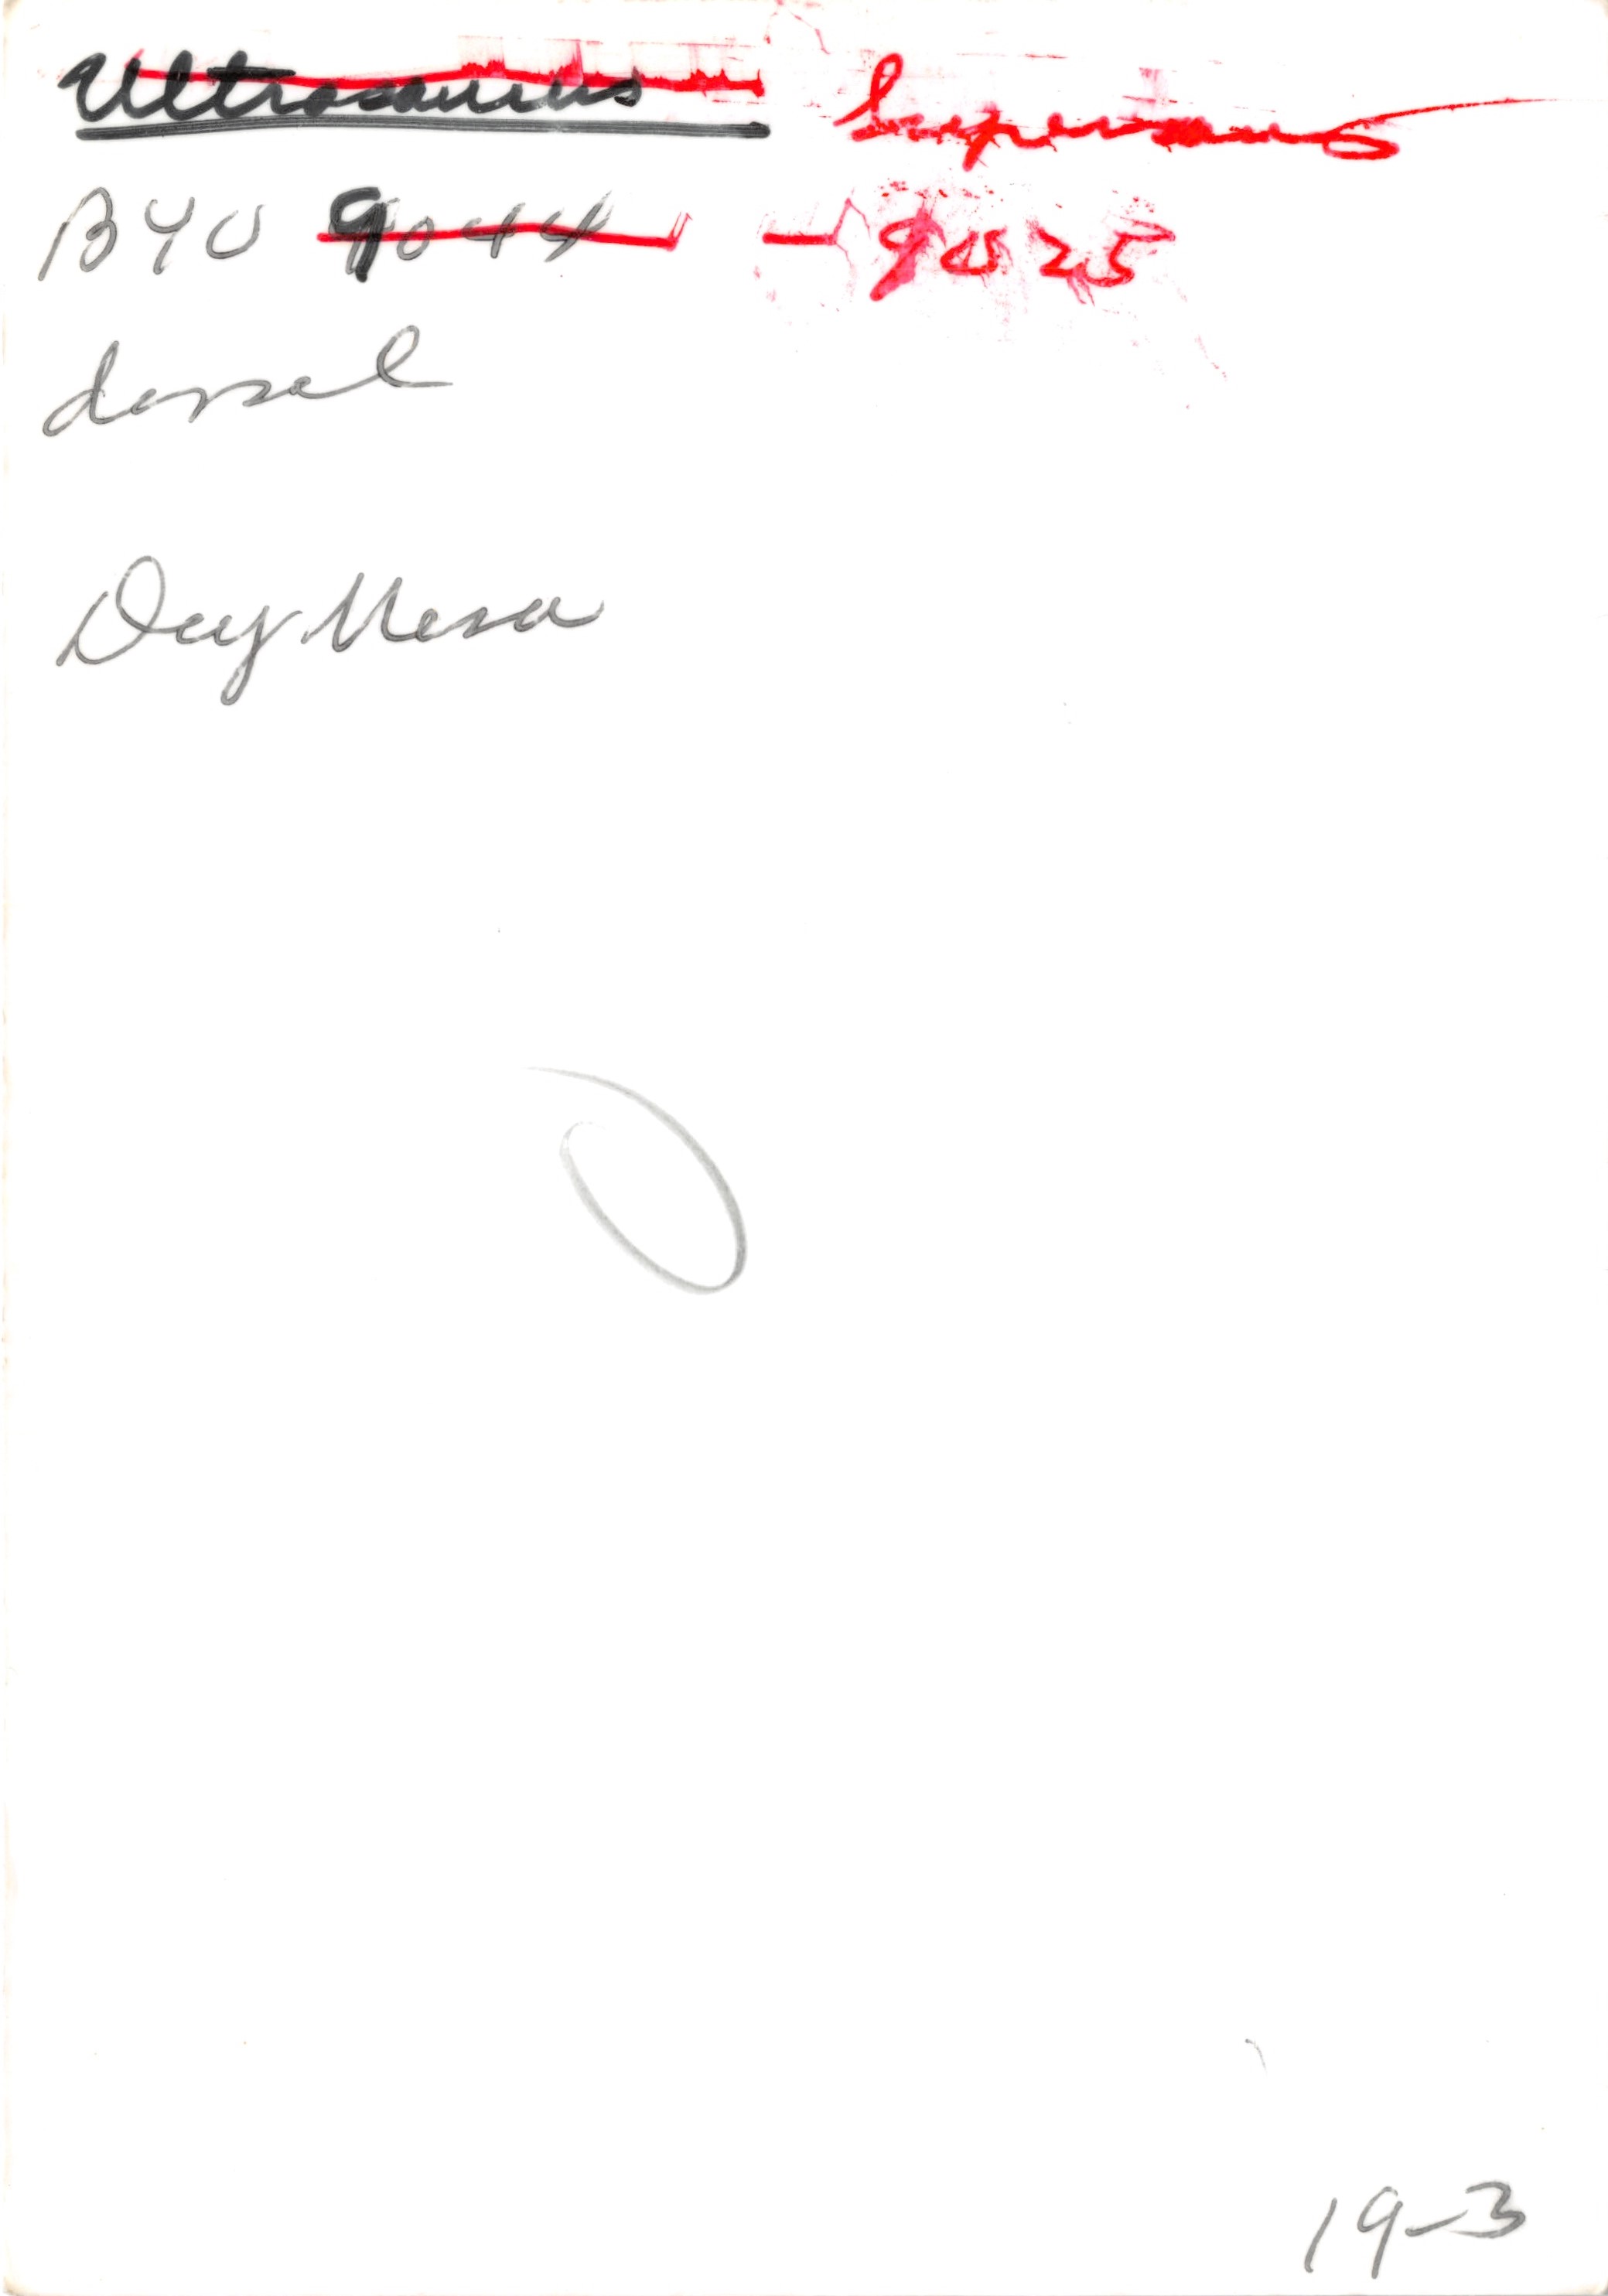 Ultrasaurus Supersaurus
BYU 9044 – 9025
dorsal
Dry Mesa
19-3